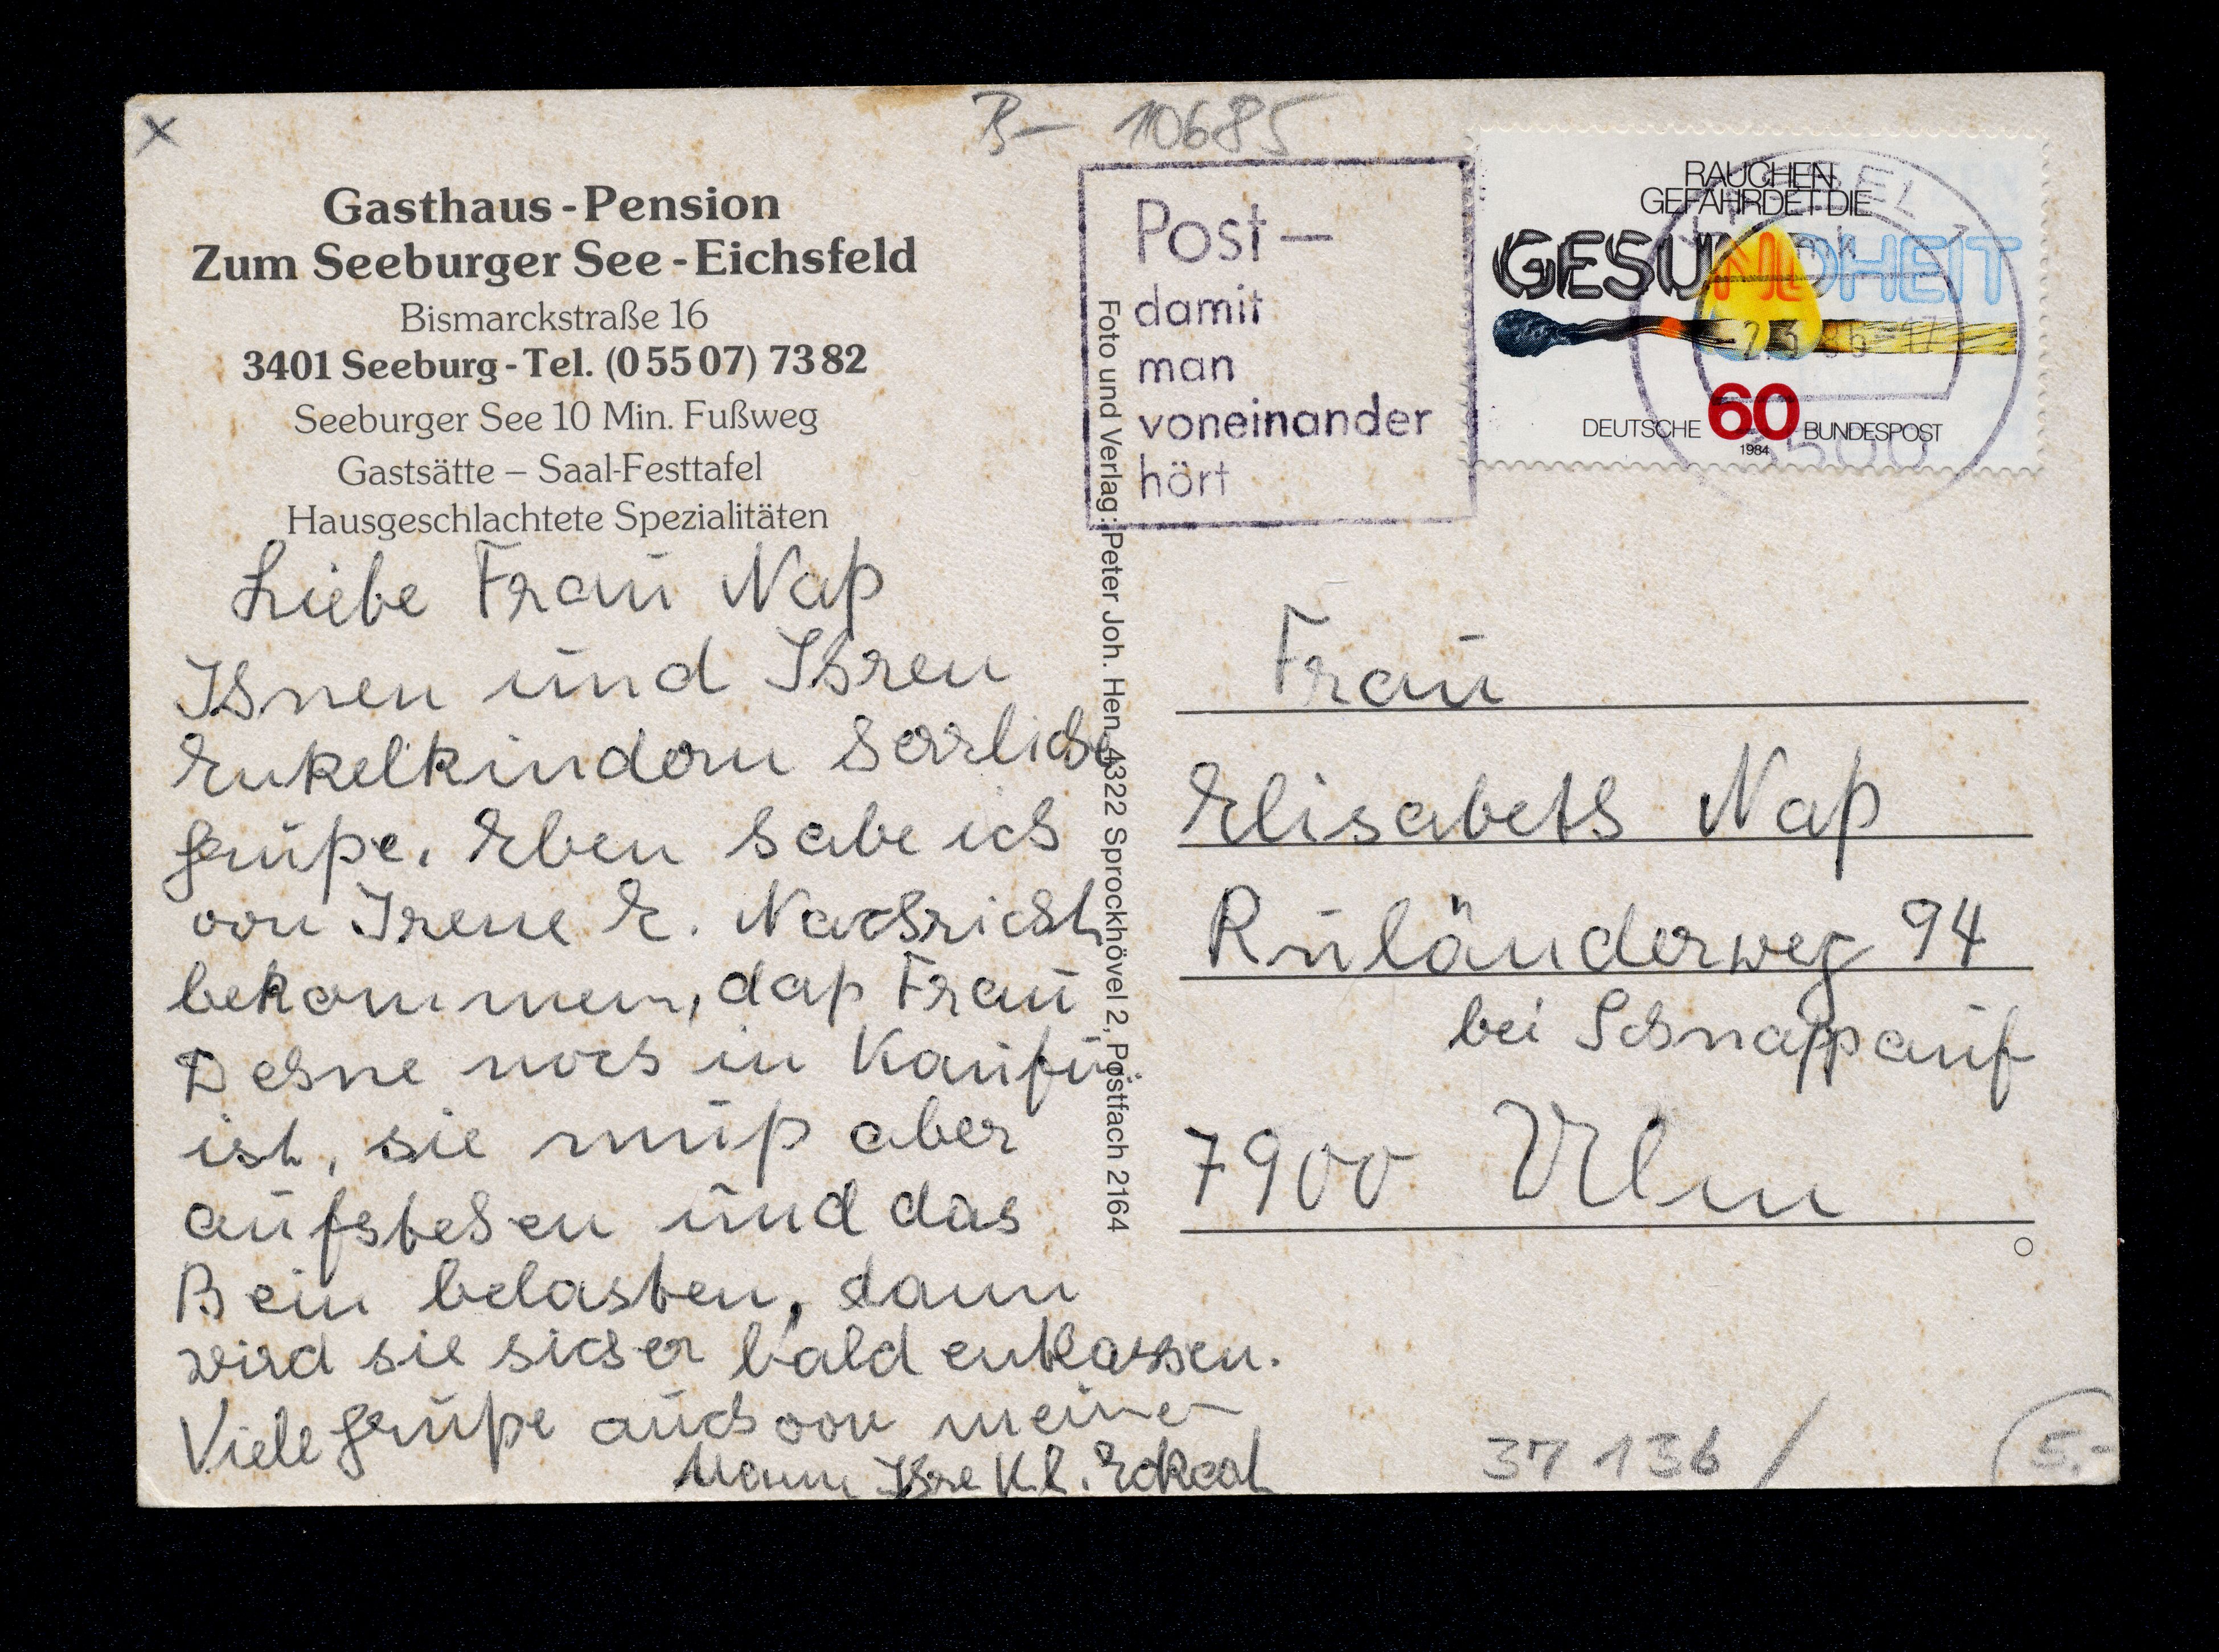 B- 10685
Gasthaus-Pension
Zum Seeburger See-Eichsfeld
Bismarckstraße 16
3401 Seeburg-Tel. (05507) 7382
Seeburger See 10 Min. Fußweg
Gastsätte – Saal-Festtafel
Hausgeschlachtete Spezialitäten
Liebe Frau Naß
Ihnen und Ihren
Enkelkindern herzliche
Grüße. Eben habe ich
von Irene E. Nachricht
bekommen, daß Frau
Dehne noch in Kaufu
ist, sie muß aber
aufstehen und das
Bein belasten, dann
wird sie sicher bald entlassen.
Viele Grüße auch von meinen
Mann Ihre Kl. Eckeat
Foto und Verlag: Peter Joh. Hen, 4322 Sprockhövel 2, Postfach 2164
Post –
damit
man
voneinander
hört
RAUCHEN
GEFÄHRDET DIE
GESUNDHEIT
DEUTSCHE 60 BUNDESPOST
1984
3500
Frau
Elisabeth Naß
Ruländerweg 94
bei Schnappauf
7900 Ulm
37 136 /
5.-